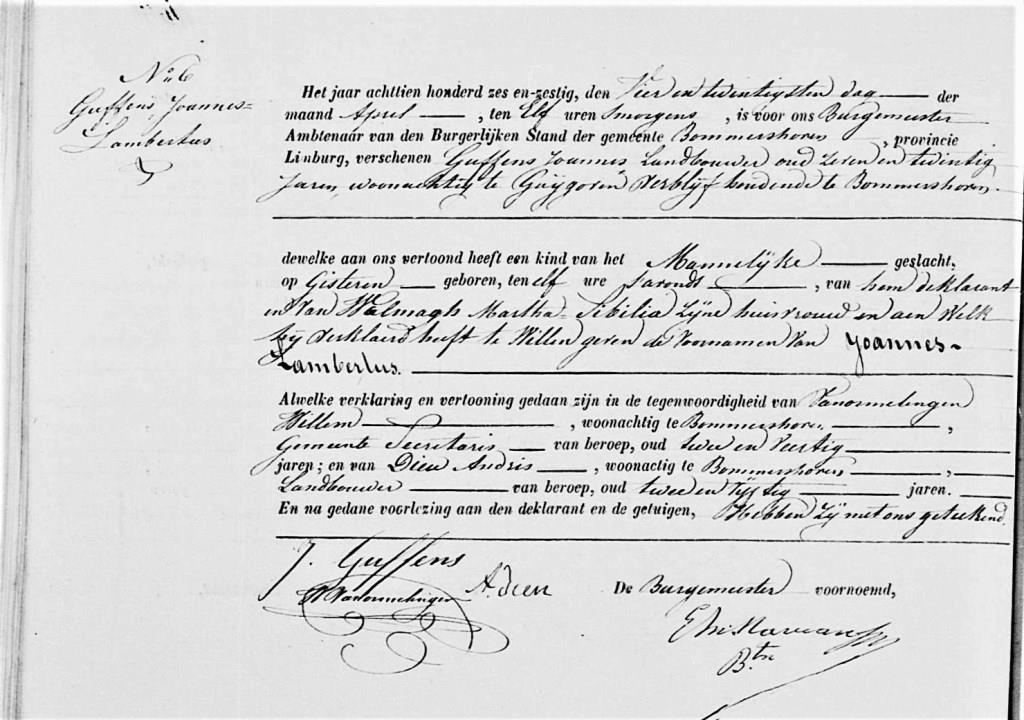 N° 6
Guffens, Joannes=
Lambertus
Het jaar achttien honderd zes en-zestig, den Vier en twintigsten dag der
maand April , ten Elf uren Smorgens , is voor ons Burgemeester
Ambtenaár van den Burgerlijken Stand der gemeente Bommershoven , provincie
Linburg, verschenen Guffens Joannes Landbouwer oud Zeven en twintig
Jaren, woonachtig te Guÿgoven Verblÿf houdende te Bommershoven.
dewelke aan ons vertoond heeft een kind van het Mannelÿke geslacht,
op Gisteren geboren, ten elf ure s'avonds , van hem deklarant
en Van Walmagh Martha-Sibilia Zÿne huisvrouw en aen Welk
hÿ Verklaerd heeft te Willen geven de Voornamen Van Joannes-
Lambertus.
Alwelke verklaring en vertooning gedaan zijn in de tegenwoordigheid van Vanormelingen
Willem , woonachtig te Bommershoven ,
Gemeente Secretaris van beroep, oud twee en Veertig
jaren ; en van Dieu Andris , woonactig te Bommershoven ,
Landbouwer van beroep, oud twee en Vÿftig jaren.
En na gedane voorlezing aan den deklarant en de getuigen, Hebben Zÿ met ons geteekend.
J. Guffens
W Vanormelingen A. dieu De Burgemeester voornoemd,
Btn